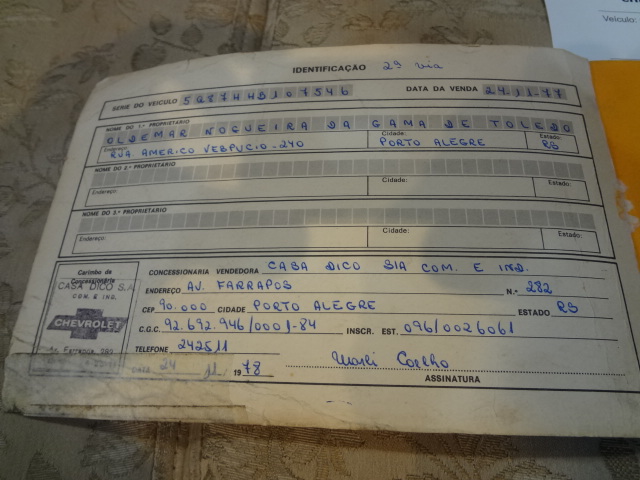 Veículo:
IDENTIFICAÇÃO 2ª via
SÉRIE DO VEÍCULO 5Q87HHB107546 DATA DA VENDA 24.11.77
NOME DO 1.º PROPRIETÁRIO
OLDEMAR NOGUEIRA DA GAMA DE TOLEDO
Endereço: RUA AMERICO VESPUCIO-240 Cidade: PORTO ALEGRE Estado: RS
NOME DO 2.º PROPRIETÁRIO
Endereço: Cidade: Estado:
NOME DO 3.º PROPRIETÁRIO
Endereço: Cidade: Estado:
Carimbo da Concessionária
CASA DICO S.A
COM. E IND.
CHEVROLET
Av. Farrapos
CONCESSIONÁRIA VENDEDORA CASA DICO S/A COM. E IND.
ENDEREÇO AV. FARRAPOS N.º 282
CEP 90.000 CIDADE PORTO ALEGRE ESTADO RS
C.G.C. 92.692.946/0001-84 INSCR. EST. 096/0026061
TELEFONE 242511
DATA 24 1978
Marli Coelho
ASSINATURA